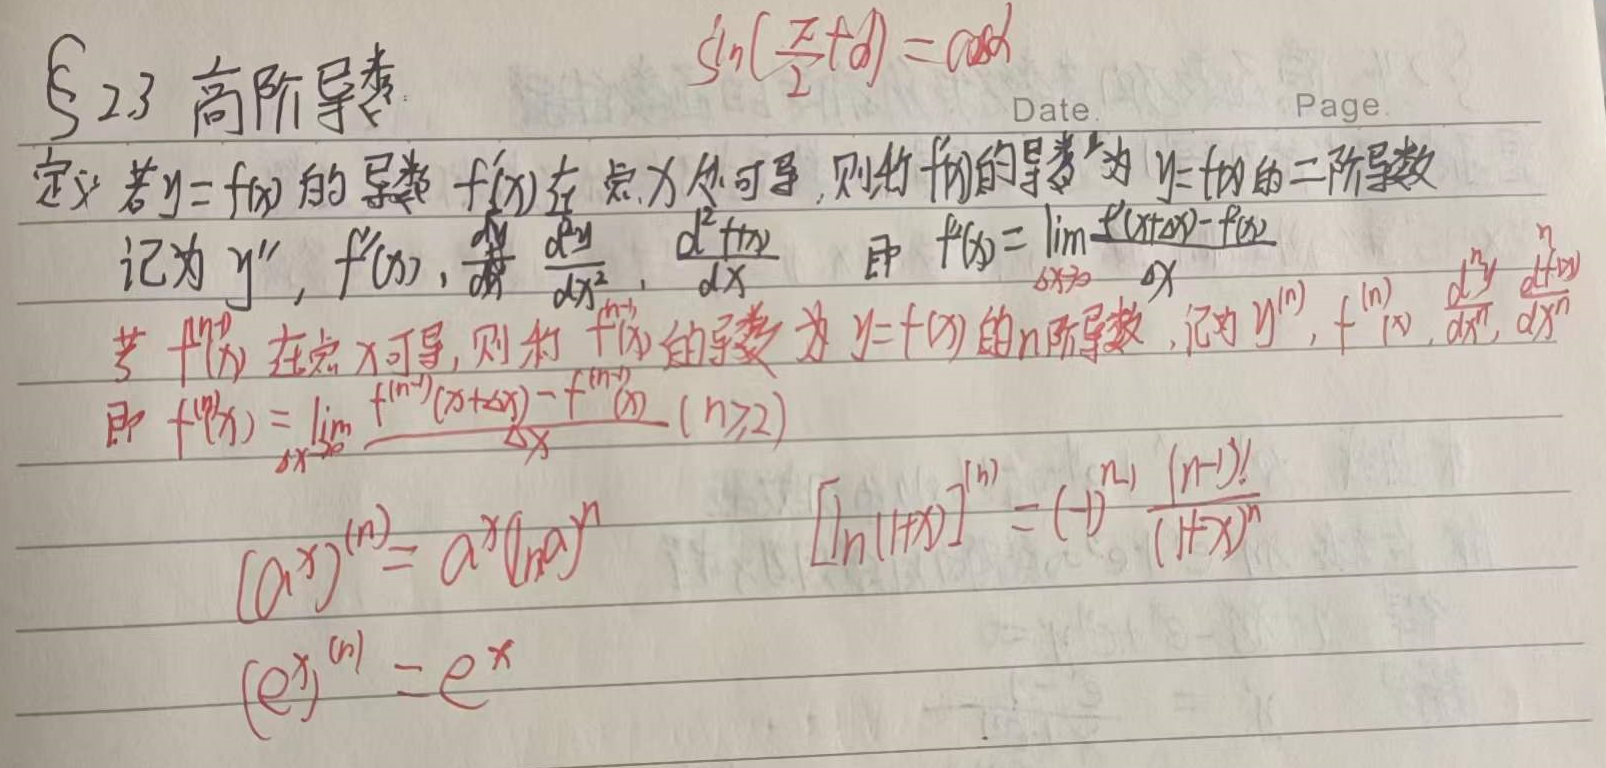 sin(π/2+α)=cosα
§2.3 高阶导数
Date. Page.
定义 若y=f(x)的导数f'(x)在点x处可导,则称f'(x)的导数为y=f(x)的二阶导数
记为y'', f''(x), d²y/dx², d²f(x)/dx 即 f''(x)=lim_{Δx→0} (f'(x+Δx)-f'(x))/Δx
若f^(n-1)(x)在点x可导,则称f^(n-1)(x)的导数为y=f(x)的n阶导数,记为y^(n), f^(n)(x), d^n y/dx^n, d^n f(x)/dx^n
即 f^(n)(x)=lim_{Δx→0} (f^(n-1)(x+Δx)-f^(n-1)(x))/Δx (n≥2)
(a^x)^(n)=a^x(lna)^n [ln(1+x)]^(n)=(-1)^(n-1) (n-1)!/(1+x)^n
(e^x)^(n)=e^x